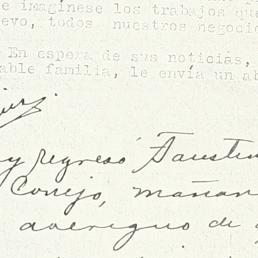 e imagínese los trabajos que
evo, todos nuestros negocio
En espera de sus noticias,
able familia, le envía un ab
y regresó Faustin
Conejo, mañan
averiguo de